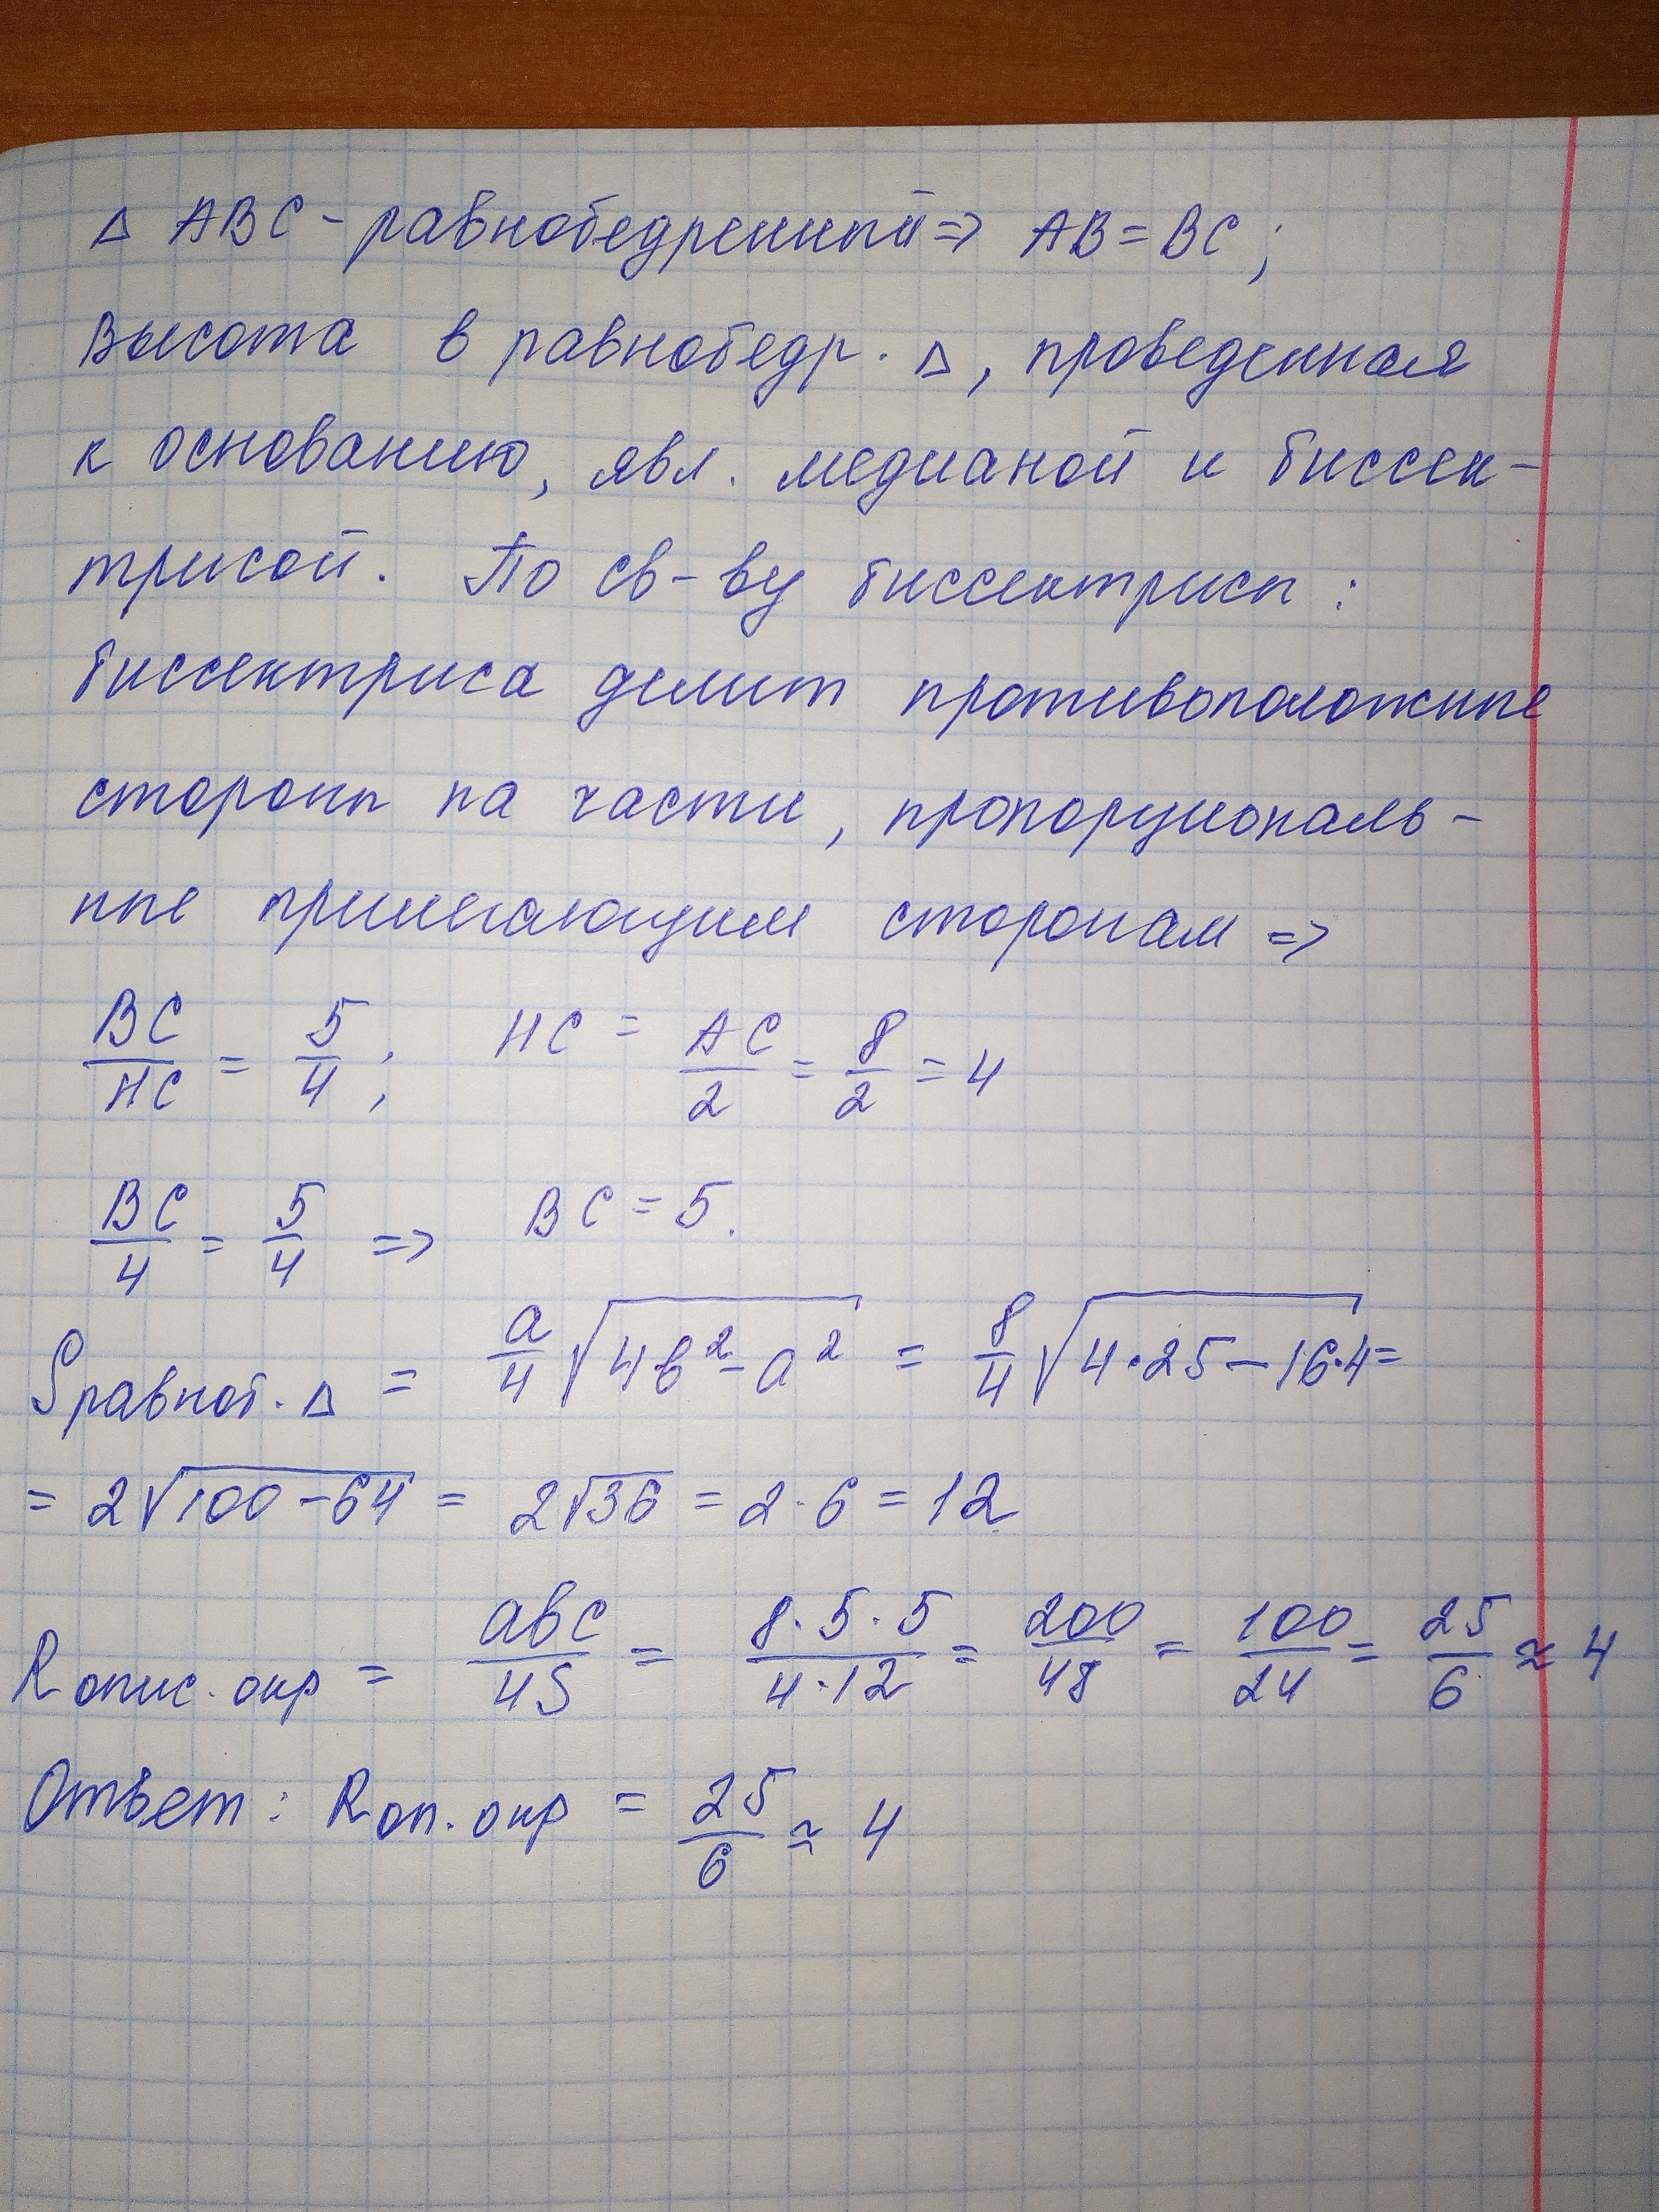 Δ ABC - равнобедренный => AB = BC;
Высота в равнобедр. Δ, проведенная
к основанию, явл. медианой и биссек-
трисой. По св-ву биссектрисы:
биссектриса делит противоположные
стороны на части, пропорциональ-
ные прилегающим сторонам =>
BC/HC = 5/4; HC = AC/2 = 8/2 = 4
BC/4 = 5/4 => BC = 5.
Sравноб. Δ = a/4 √(4b² - a²) = 8/4 √(4·25 - 16·4) =
= 2√(100 - 64) = 2√36 = 2·6 = 12
R опис. окр = abc/4S = 8·5·5/4·12 = 200/48 = 100/24 = 25/6 ≈ 4
Ответ: R оп. окр = 25/6 ≈ 4